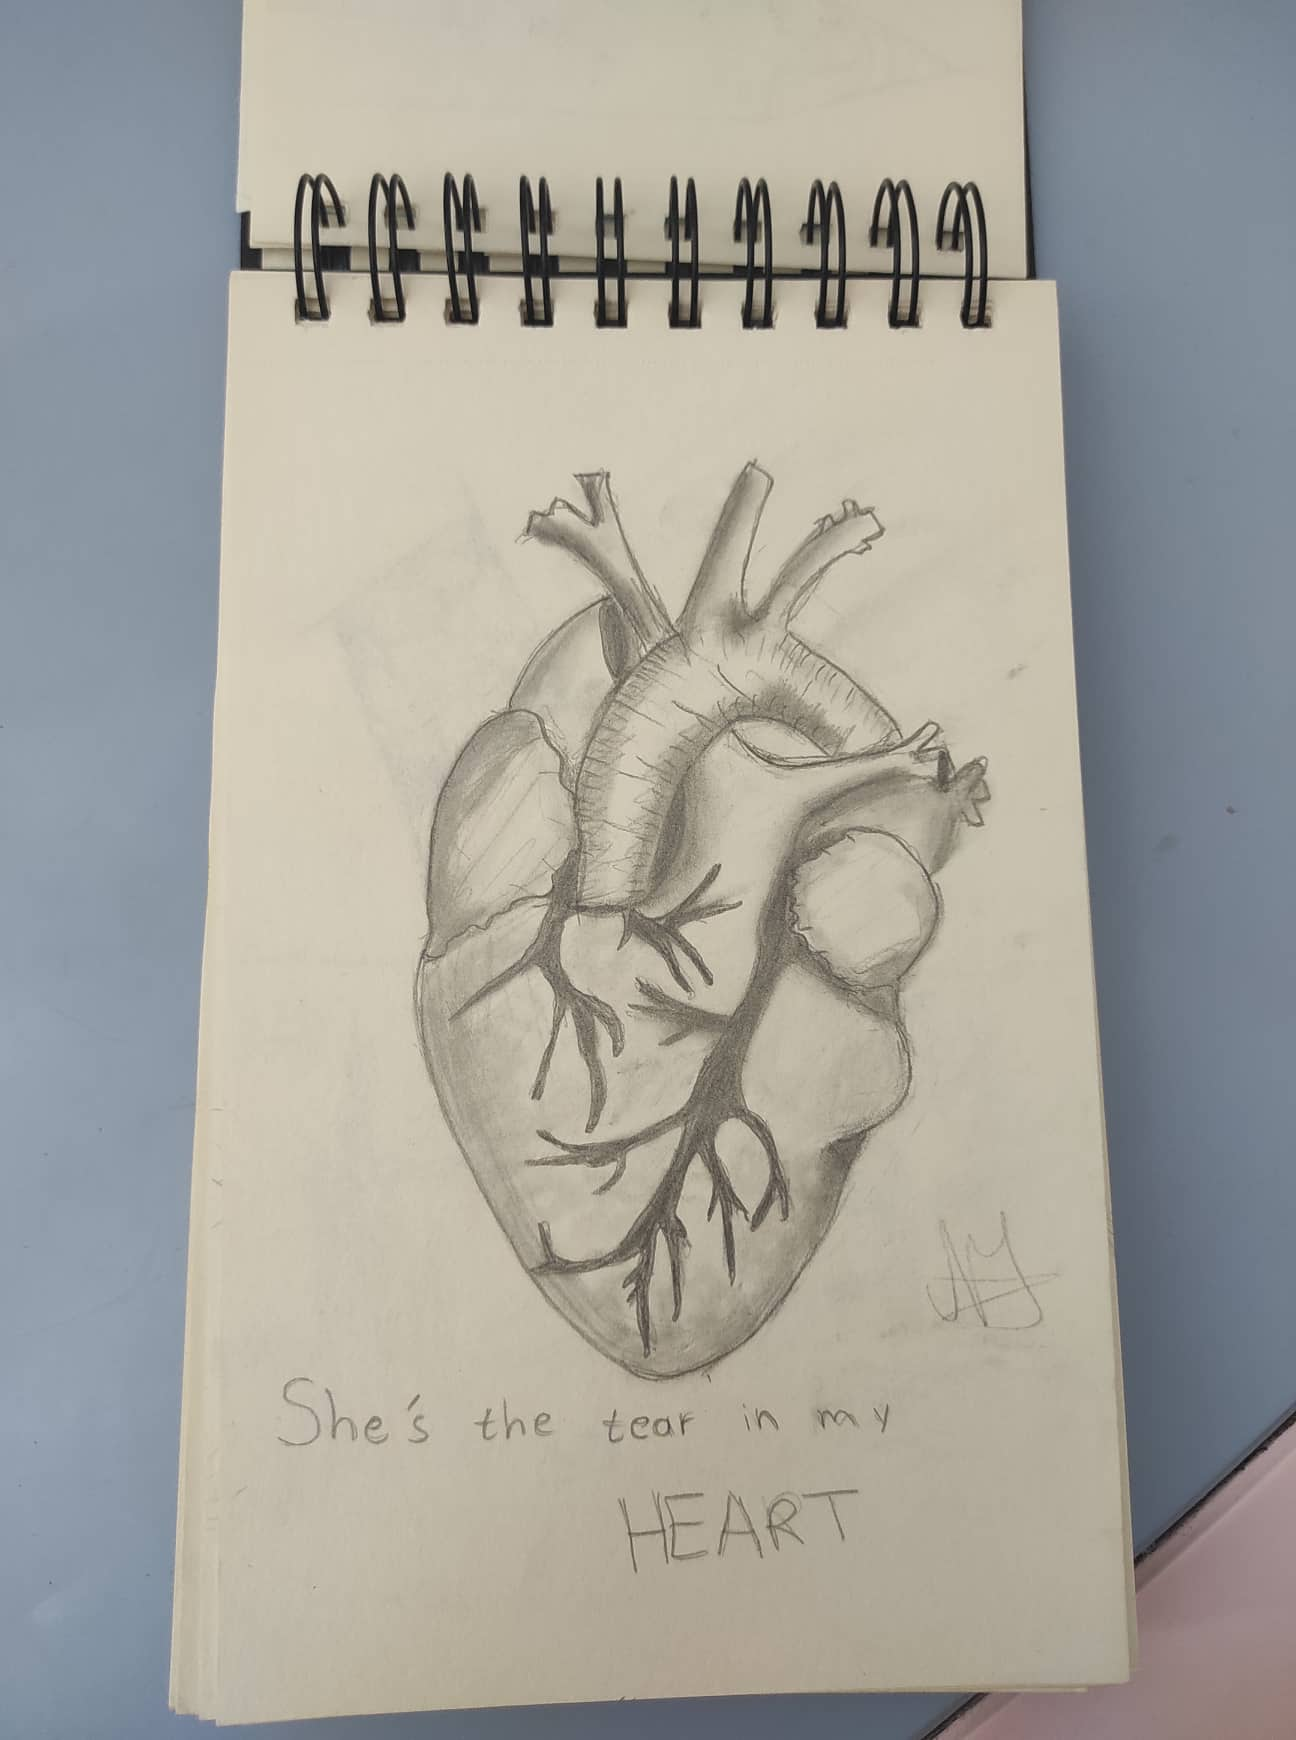 She's the tear in my
HEART